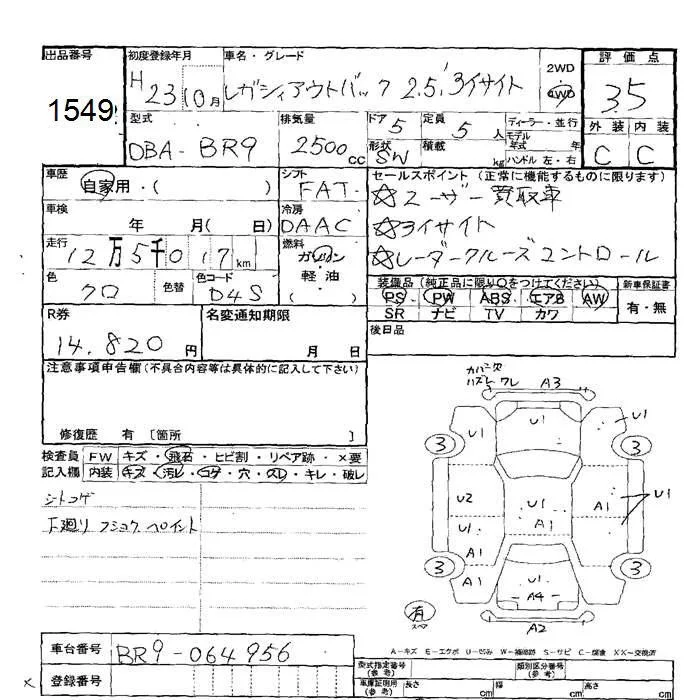 出品番号
1549
初度登録年月
H 23 10月
車名・グレード
レガシィアウトバック 2.5i 3イサイト
2WD
4WD
評価点
3.5
外装 内装
C C
型式
DBA-BR9
排気量
2500cc
ドア 5
定員 5人
形状 SW
積載 kg
ディーラー・並行
モデル年式 年
ハンドル 左・右
車歴
自家用・( )
シフト
FAT
セールスポイント (正常に機能するものに限ります)
☆ユーザー買取車
☆3イサイト
☆レーダークルーズコントロール
車検
年 月( 日)
冷房
DAAC
走行
12万5千017km
燃料
ガソリン
軽油
( )
色
クロ
色替
色コード
D4S
装備品 (純正品に限り○をつけてください)
PS PW ABS エアB AW
SR ナビ TV カワ
新車保証書
有・無
R券
14,820円
名変通知期限
月 日
後日品
注意事項申告欄(不具合内容等は具体的に記入して下さい)
修復歴 有 [箇所 ]
検査員記入欄
FW キズ・飛石・ヒビ割・リペア跡・×要
内装 キズ・汚レ・コゲ・穴・スレ・キレ・破レ
シートコゲ
下廻り フショク ペイント
カバー欠
ハズレ ワレ A3
U1 U1 U1
3 3
U2 U1 A1 U1
U1 A1
A1
3 3
A1 U1
A4
有
スペア
A2
A-キズ E-エクボ U-凹ミ W-補修跡 S-サビ C-腐食 XX-交換済
車台番号
BR9-064956
登録番号
型式指定番号(参考)
類別区分番号(参考)
車庫証明用(参考) 長さ cm 幅 cm 高さ cm